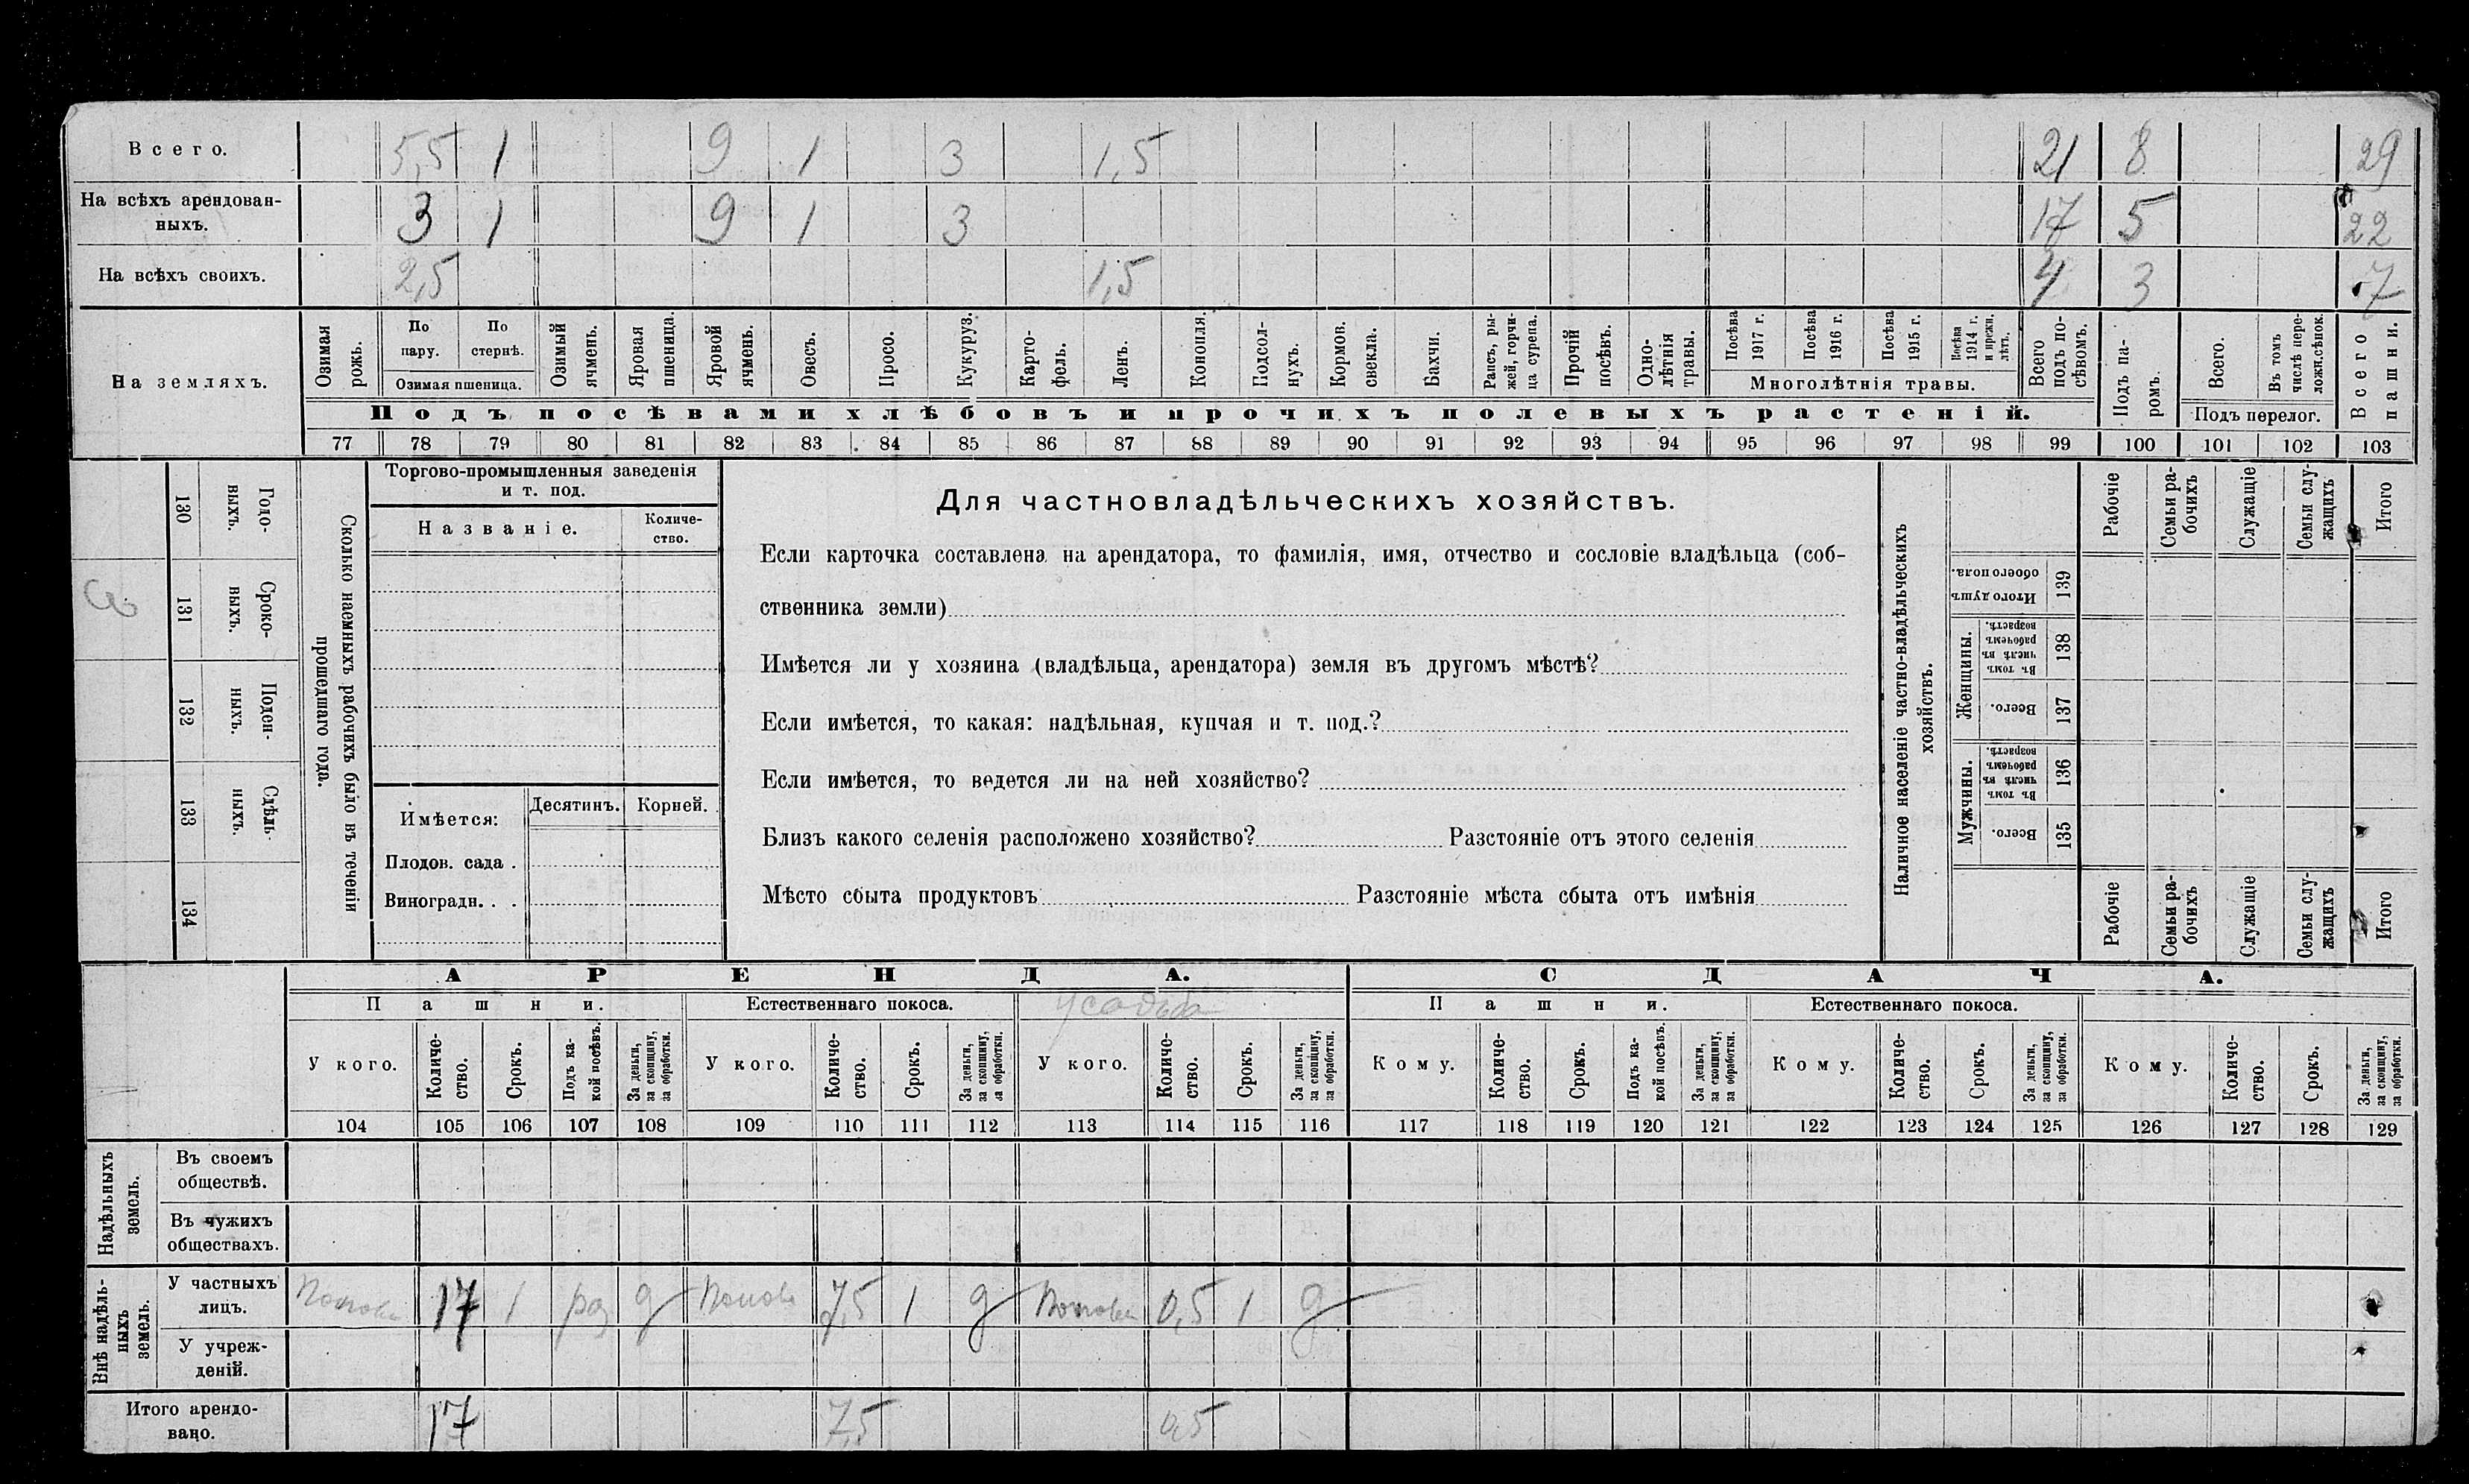 Всего. 5,5 1 9 1 3 1,5 21 8 29
На всѣхъ арендован-
ныхъ. 3 1 9 1 3 17 5 22
На всѣхъ своихъ. 2,5 1,5 4 3 7
На земляхъ.
Озимая рожь.
По пару.
По стернѣ.
Озимая пшеница.
Озимый ячмень.
Яровая пшеница.
Яровой ячмень.
Овесъ.
Просо.
Кукуруз.
Карто-
фель.
Ленъ.
Конопля.
Подсол-
нухъ.
Кормов. свекла.
Бахчи.
Рапсъ, ры-
жей, горчи-
ца сурепа.
Прочій посѣвъ.
Одно-
лѣтнія травы.
Посѣва 1917 г.
Посѣва 1916 г.
Посѣва 1915 г.
Посѣва 1914 г. и прежн. лѣтъ.
Многолѣтнія травы.
Всего подъ по-
сѣвомъ.
Подъ па-
ромъ.
Всего.
Въ томъ числѣ пере-
ложн.сѣнок.
Подъ перелог.
Всего пашни.
Подъ посѣвами хлѣбовъ и прочихъ полевыхъ растеній.
77 78 79 80 81 82 83 84 85 86 87 88 89 90 91 92 93 94 95 96 97 98 99 100 101 102 103
130 Годо-
выхъ.
131 Сроко-
выхъ.
132 Поден-
ныхъ.
133 Сдѣль-
ныхъ.
134
Сколько наемныхъ рабочихъ было въ теченіи
прошедшаго года.
Торгово-промышленныя заведенія
и т. под.
Названіе.
Количе-
ство.
Имѣется:
Десятинъ.
Корней.
Плодов. сада .
Виноградн. . .
Для частновладѣльческихъ хозяйствъ.
Если карточка составлена на арендатора, то фамилія, имя, отчество и сословіе владѣльца (соб-
ственника земли)
Имѣется ли у хозяина (владѣльца, арендатора) земля въ другомъ мѣстѣ?
Если имѣется, то какая: надѣльная, купчая и т. под.?
Если имѣется, то ведется ли на ней хозяйство?
Близъ какого селенія расположено хозяйство? Разстояніе отъ этого селенія
Мѣсто сбыта продуктовъ Разстояніе мѣста сбыта отъ имѣнія
Наличное населеніе частно-владѣльческихъ
хозяйствъ.
Рабочіе
Семьи ра-
бочихъ
Служащіе
Семьи слу-
жащихъ
Итого
Итого душъ обоего пола. 139
Женщины.
Въ томъ числѣ въ рабочемъ возрастѣ. 138
Всего. 137
Мужчины.
Въ томъ числѣ въ рабочемъ возрастѣ. 136
Всего. 135
Рабочіе
Семьи ра-
бочихъ
Служащіе
Семьи слу-
жащихъ
Итого
АРЕНДА. СДАЧА.
Пашни. Естественнаго покоса. усадьба Пашни. Естественнаго покоса.
У кого.
Количе-
ство.
Срокъ.
Подъ ка-
кой посѣвъ.
За деньги, за скопщину, за обработки.
У кого.
Количе-
ство.
Срокъ.
За деньги, за скопщину, за обработки.
У кого.
Количе-
ство.
Срокъ.
За деньги, за скопщину, за обработки.
Кому.
Количе-
ство.
Срокъ.
Подъ ка-
кой посѣвъ.
За деньги, за скопщину, за обработки.
Кому.
Количе-
ство.
Срокъ.
За деньги, за скопщину, за обработки.
Кому.
Количе-
ство.
Срокъ.
За деньги, за скопщину, за обработки.
104 105 106 107 108 109 110 111 112 113 114 115 116 117 118 119 120 121 122 123 124 125 126 127 128 129
Надѣльныхъ земель.
Въ своемъ
обществѣ.
Въ чужихъ
обществахъ.
Внѣ надѣль-
ныхъ земель.
У частныхъ
лицъ. 17 1 раз д 7,5 1 д 0,5 1 д
У учреж-
деній.
Итого арендо-
вано. 17 7,5 0,5